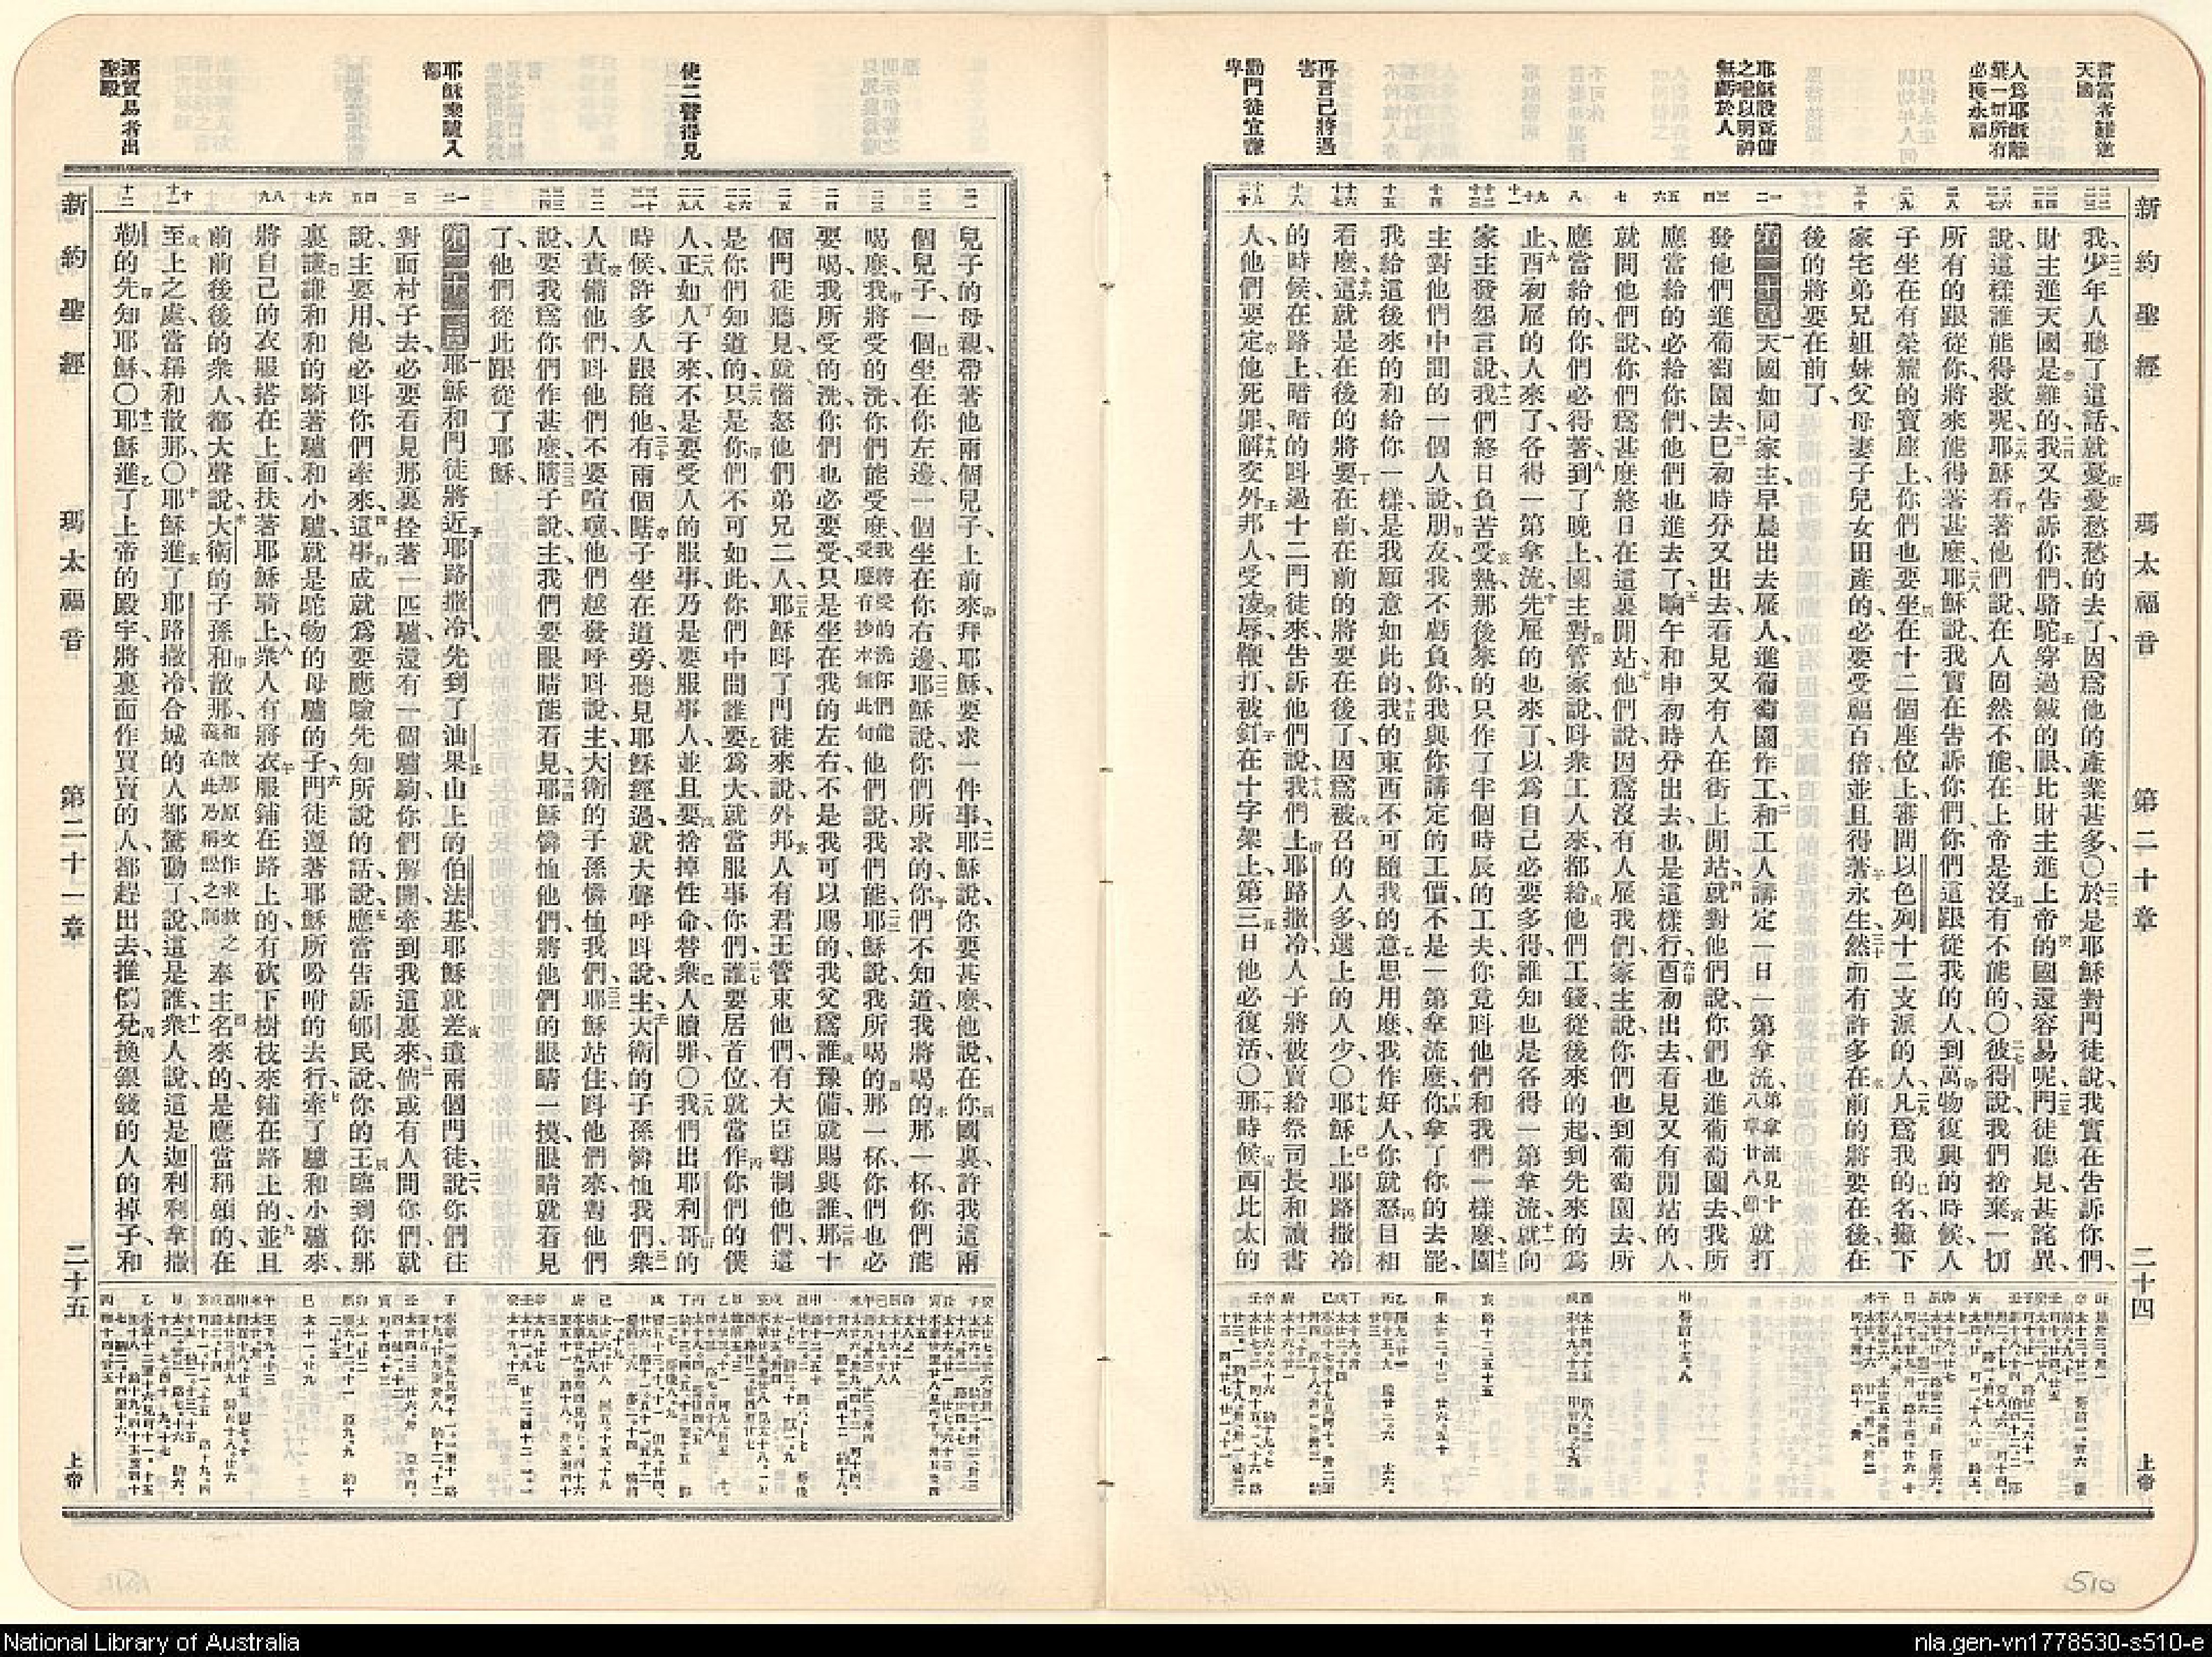 言富者難進
天國
人爲耶穌離
棄一切所有
必獲永福
耶穌設葡傭
之喻以明神
無虧於人
再言己將遇
害
勸門徒宜謙
卑
新約聖經 瑪太福音 第二十章 二十四 上帝
我、少年人聽了這話、就憂憂愁愁的去了、因爲他的產業甚多、〇於是耶穌對門徒說、我實在告訴你們、
財主進天國是難的、我又告訴你們、駱駝穿過鍼的眼、比財主進上帝的國還容易呢、門徒聽見甚詫異、
說、這樣誰能得救呢、耶穌看著他們說、在人固然不能、在上帝是沒有不能的、〇彼得說、我們捨棄一切
所有的跟從你、將來能得著甚麼、耶穌說、我實在告訴你們、你們這跟從我的人、到萬物復興的時候、人
子坐在有榮耀的寶座上、你們也要坐在十二個座位上、審問以色列十二支派的人、凡爲我的名撇下
家宅弟兄姐妹父母妻子兒女田產的、必要受福百倍、並且得著永生、然而有許多在前的將要在後、在
後的將要在前了、
第二十章 天國如同家主早晨出去雇人、進葡萄園作工、和工人講定一日一第拿流、第拿流見十八章廿八節 就打
發他們進葡萄園去、巳初時分又出去、看見又有人在街上閒站、就對他們說、你們也進葡萄園去、我所
應當給的、必給你們、他們也進去了、晌午和申初時分出去、也是這樣行、酉初出去、看見又有閒站的人、
就問他們說、你們爲甚麼終日在這裏閒站、他們說、因爲沒有人雇我們、家主說、你們也到葡萄園去、所
應當給的、你們必得著、到了晚上、園主對管家說、呌衆工人來、都給他們工錢、從後來的起、到先來的爲
止、酉初雇的人來了、各得一第拿流、先雇的也來了、以爲自己必要多得、誰知也是各得一第拿流、就向
家主發怨言說、我們終日負苦受熱、那後來的只作了半個時辰的工夫、你竟呌他們和我們一樣麼、園
主對他們中間的一個人說、朋友、我不虧負你、我與你講定的工價、不是一第拿流麼、你拿了你的去罷、
我給這後來的和給你一樣、是我願意如此的、我的東西不可隨我的意思用麼、我作好人、你就怒目相
看麼、這就是在後的將要在前、在前的將要在後了、因爲被召的人多、選上的人少、〇耶穌上耶路撒冷
的時候、在路上暗暗的呌過十二門徒來、告訴他們說、我們上耶路撒冷、人子將被賣給祭司長和讀書
人、他們要定他死罪、解交外邦人、受凌辱、鞭打、被釘在十字架上、第三日他必復活、〇那時候西比太的
使二瞽得見
耶穌乘驢入
都
逐貿易者出
聖殿
兒子的母親、帶著他兩個兒子、上前來拜耶穌、要求一件事、耶穌說、你要甚麼、他說、在你國裏、許我這兩
個兒子、一個坐在你左邊、一個坐在你右邊、耶穌說、你們所求的、你們不知道、我將喝的那一杯、你們能
喝麼、我將受的洗、你們能受麼、我將受的洗你們能受麼有抄本無此句 他們說、我們能、耶穌說、我所喝的那一杯、你們也必
要喝、我所受的洗、你們也必要受、只是坐在我的左右、不是我可以賜的、我父爲誰豫備、就賜與誰、那十
個門徒聽見、就惱怒他們弟兄二人、耶穌呌了門徒來說、外邦人有君王管束他們、有大臣轄制他們、這
是你們知道的、只是你們不可如此、你們中間誰要爲大、就當服事你們、誰要居首位、就當作你們的僕
人、正如人子來、不是要受人的服事、乃是要服事人、並且要捨掉性命、替衆人贖罪、〇我們出耶利哥的
時候、許多人跟隨他、有兩個瞎子坐在道旁、聽見耶穌經過、就大聲呼呌說、主、大衛的子孫、憐恤我們、衆
人責備他們、呌他們不要喧嚷、他們越發呼呌說、主、大衛的子孫、憐恤我們、耶穌站住、呌他們來、對他們
說、要我爲你們作甚麼、瞎子說、主、我們要眼睛能看見、耶穌憐恤他們、將他們的眼睛一摸、眼睛就看見
了、他們從此跟從了耶穌、
第二十一章 耶穌和門徒將近耶路撒冷、先到了油果山上的伯法基、耶穌就差遣兩個門徒、說、你們往
對面村子去、必要看見那裏拴著一匹驢、還有一個驢駒、你們解開牽到我這裏來、倘或有人問你們、就
說、主要用他、必呌你們牽來、這事成就、爲要應驗先知所說的話、說、應當告訴郇民說、你的王臨到你那
裏、謙謙和和的騎著驢和小驢、就是駝物的母驢的子、門徒遵著耶穌所吩咐的去行、牽了驢和小驢來、
將自己的衣服搭在上面、扶著耶穌騎上、衆人有將衣服鋪在路上的、有砍下樹枝來鋪在路上的、並且
前前後後的衆人、都大聲說、大衛的子孫、和散那、和散那原文作求救之義在此乃稱訟之詞 奉主名來的、是應當稱頌的、在
至上之處、當稱和散那、〇耶穌進了耶路撒冷、合城的人都驚動了、說、這是誰、衆人說、這是迦利利拿撒
勒的先知耶穌、〇耶穌進了上帝的殿宇、將裏面作買賣的人、都趕出去、推倒兌換銀錢的人的棹子、和
新約聖經 瑪太福音 第二十一章 二十五 上帝
510
National Library of Australia
nla.gen-vn1778530-s510-e